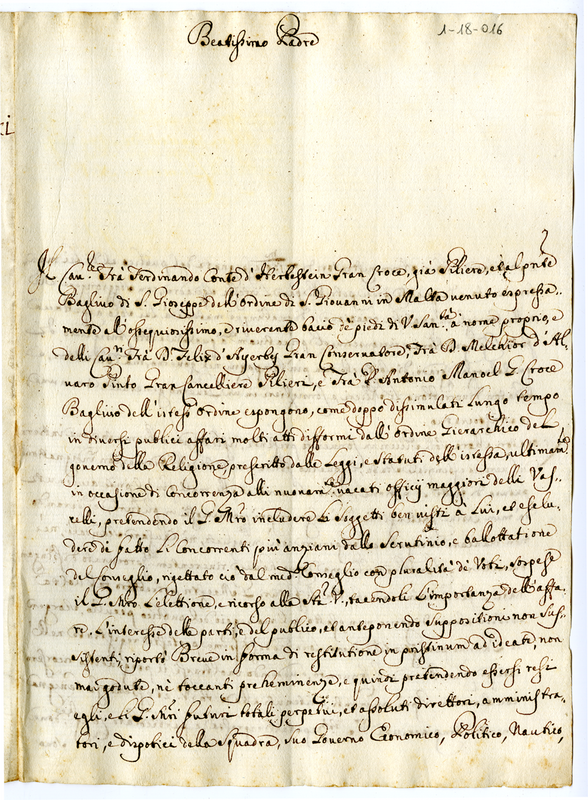 1-18-016
Beatissimo Padre
Il Cau.re Frà Ferdinando Conte d'Herbestein Gran Croce, già Piliere, et al pnte
Baglivo di S. Gioseppe dell'ordine di S. Giovanni in Malta venuto espressa-
mente all'ossequiosissimo, e riverente bacio de piedi di V. San.tà a nome proprio, e
delli Cau.ri Frà D. Felice d'Ayerbe Gran Conservatore, Frà D. Melchior d'Al-
varo Pinto Gran Cancelliere Pilieri, e Frà D. Antonio Manoel G. Croce
Baglivo dell'istess'ordine espongono, come doppo dissimulati lungo tempo
in diversi publici affari molti atti difformi dall'ordine Gierarchico del
governo della Religione prescritto dalle Leggi, e Statuti dell'istessa, ultimam.te
in occasione di concorrenza alli nuovam.te vacati officij maggiori delli Vas-
celli, pretendendo il G. Mro includere li soggetti ben visti à Lui, et esclu-
dere di fatto li Concorrenti più anziani dallo scrutinio, e ballottatione
del Conseglio, rigettato ciò dal med.o Conseglio con pluralità de Voti, sospese
il G. Mro l'elettione, e ricorso alla Stà V., tacendole l'importanza dell'affa-
re, l'interesse delle parti, e del publico, et anteponendo suppositioni non sus-
sistenti, riportò Breve in forma di restitutione in pristinum ad ideate, non
mai godute, nè toccanti preheminenze, e quindi pretendendo essersi resi
egli, e li G. Mri futuri totali perpetui, et assoluti direttori, amministra-
tori, e dispotici della Squadra, suo Governo Economico, Politico, Nautico,